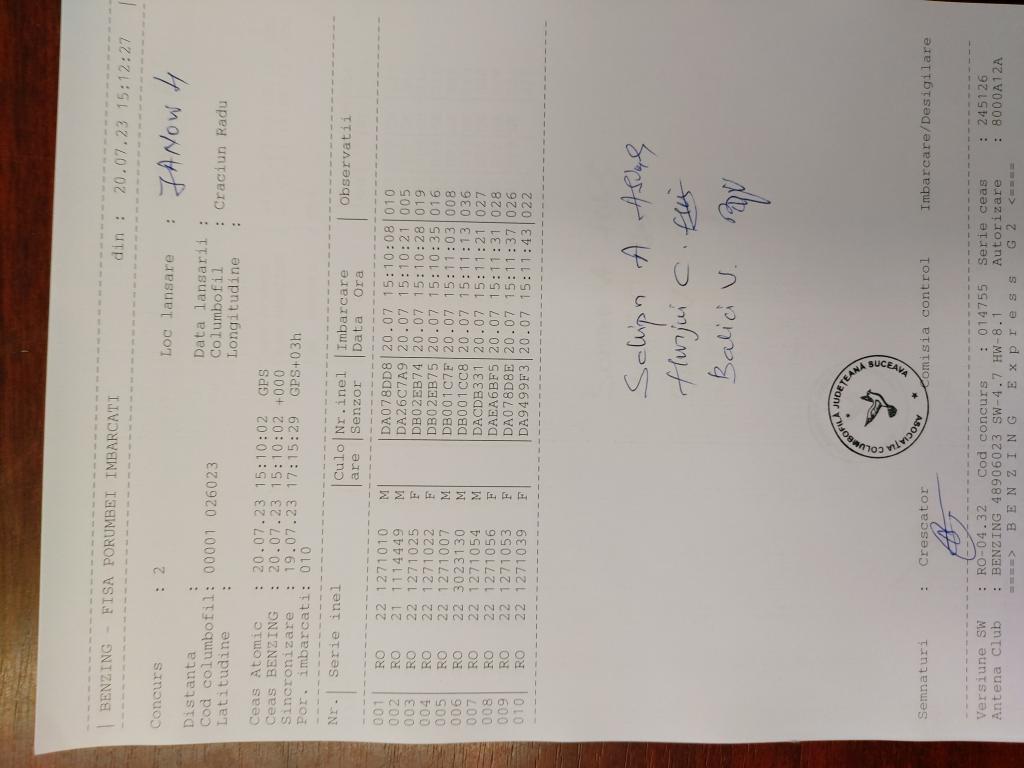 | BENZING - FISA PORUMBEI IMBARCATI din : 20.07.23 15:12:27 |
Concurs : 2 Loc lansare : JANOW 4
Distanta : Data lansarii :
Cod columbofil: 00001 026023 Columbofil : Craciun Radu
Latitudine : Longitudine :
Ceas Atomic : 20.07.23 15:10:02 GPS
Ceas BENZING : 20.07.23 15:10:02 +000
Sincronizare : 19.07.23 17:15:29 GPS+03h
Por. imbarcati: 010
Nr.| Serie inel |Culo|Nr.inel |Imbarcare | Observatii
|are |Senzor |Data Ora |
001 | RO 22 1271010 M | |DA078DD8|20.07 15:10:08|010
002 | RO 21 1114449 M | |DA26C7A9|20.07 15:10:21|005
003 | RO 22 1271025 F | |DB02EB74|20.07 15:10:28|019
004 | RO 22 1271022 F | |DB02EB75|20.07 15:10:35|016
005 | RO 22 1271007 M | |DB001C7F|20.07 15:11:03|008
006 | RO 22 3023130 M | |DB001CC8|20.07 15:11:13|036
007 | RO 22 1271054 M | |DACDB331|20.07 15:11:21|027
008 | RO 22 1271056 F | |DAEA6BF5|20.07 15:11:31|028
009 | RO 22 1271053 F | |DA078D8E|20.07 15:11:37|026
010 | RO 22 1271039 F | |DA9499F3|20.07 15:11:43|022
Schipn A
C.
Balici V.
ASOCIATIA COLUMBOFILĂ JUDEȚEANĂ SUCEAVA
Semnaturi : Crescator Comisia control Imbarcare/Desigilare
Versiune SW : RO-04.32 Cod concurs : 014755 Serie ceas : 245126
Antena Club : BENZING 48906023 SW-4.7 HW-8.1 Autorizare : 8000A12A
====> B E N Z I N G E x p r e s s G 2 <====